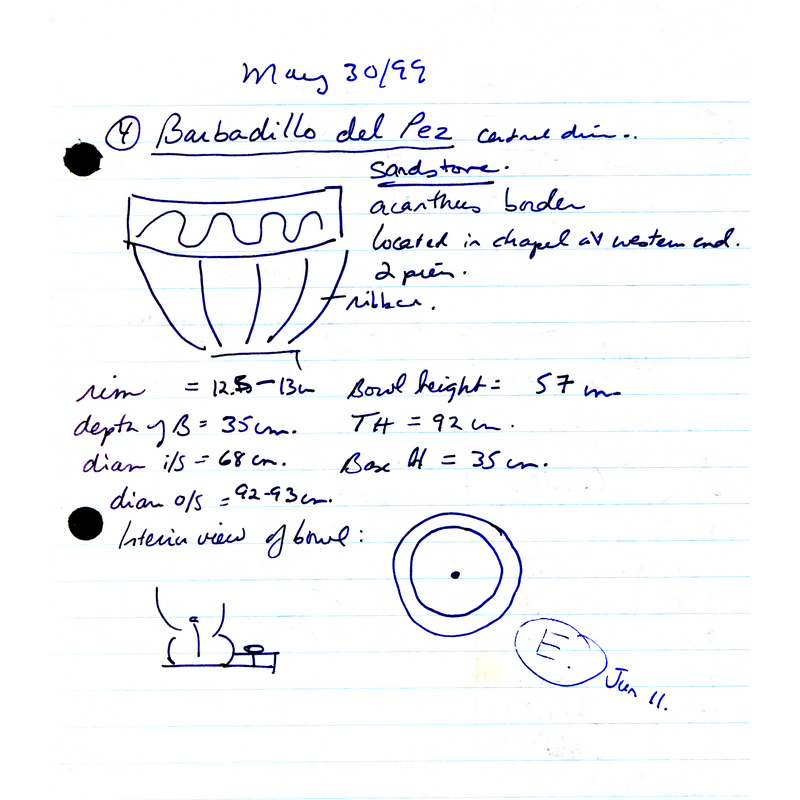 May 30/99
4 Barbadillo del Pez central drain..
Sandstone.
acanthus border
located in chapel at western end.
2 pieces.
ribbed.
rim = 12.5-13cm Bowl height = 57 cm
depth of B = 35cm. TH = 92 cm.
diam i/s = 68 cm. Base H = 35 cm.
diam o/s = 92-93cm.
Interior view of bowl:
E.
Jun 11.